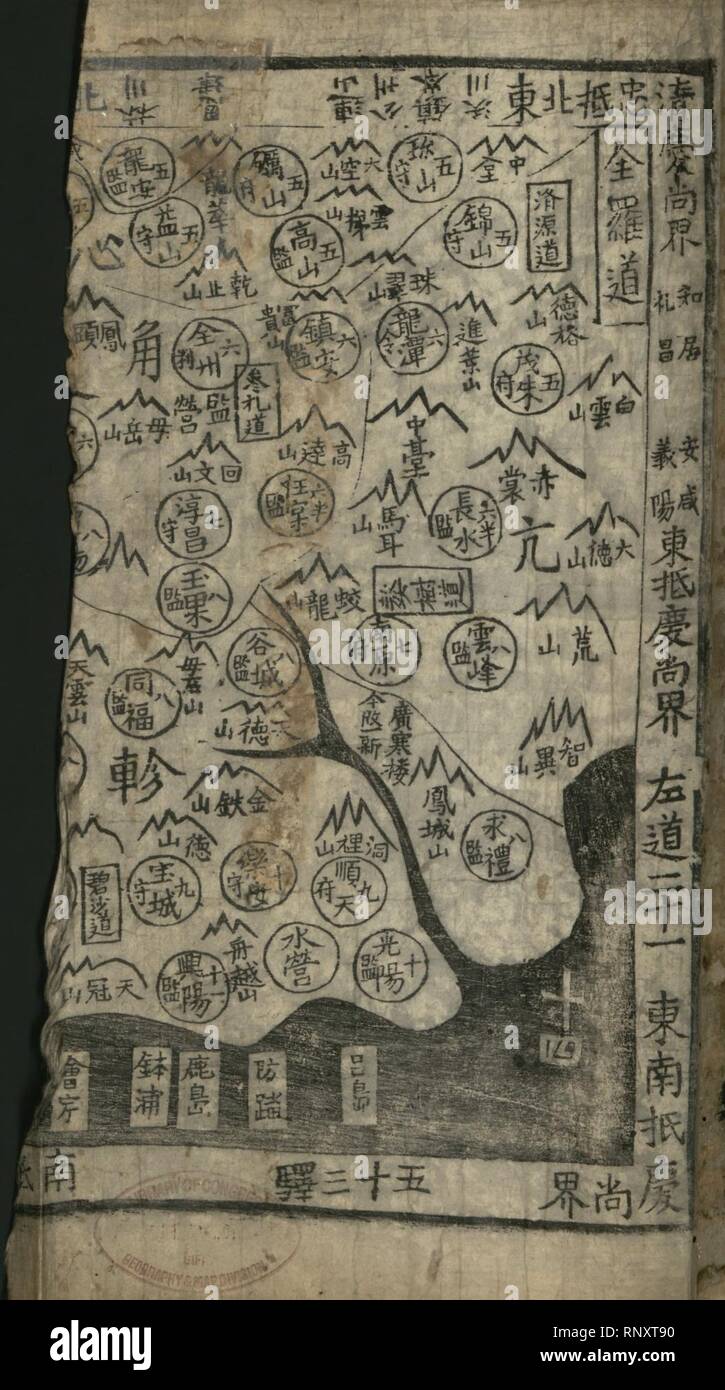 全羅道
東北抵忠清
慶尚界
知礼
居昌
安義
咸陽
東抵慶尚界
左道二十一
東南抵慶尚界
五十三驛
南
北
連山
公州
珍山 五 守
中全
錦山 五 守
濟源道
礪山 五 府
龍安 五 監
益山 五 守
龍華山
高山 五 監
雲梯山
珠崒山
乾止山
全州 六 判
監營
鎮安 六 監
富貴山
龍潭 六 令
進葉山
德裕山
茂朱 五 府
白雲山
鳳頭
角
心
母岳山
參礼道
回文山
高達山
中臺
赤裳
淳昌 七 守
任實 六半 監
馬耳山
長水 六半 監
亢
六德山
玉果 八 監
蛟龍山
南原 七 府
雲峰 八 監
荒山
谷城 八 監
同福 八 監
天雲山
天德山
廣寒楼
今改一新
智異山
鳳城山
求禮 八 監
軫
金鉄山
德山
洞裡山
順天 九 府
樂安 十 守
宝城 九 守
碧沙道
水營
光陽 十 監
舟越山
興陽 十一 監
天冠山
會宁
鉢浦
鹿島
防踏
呂島
LIBRARY OF CONGRESS
GIFT
GEOGRAPHY & MAP DIVISION
alamy
Image ID: RNXT90
www.alamy.com